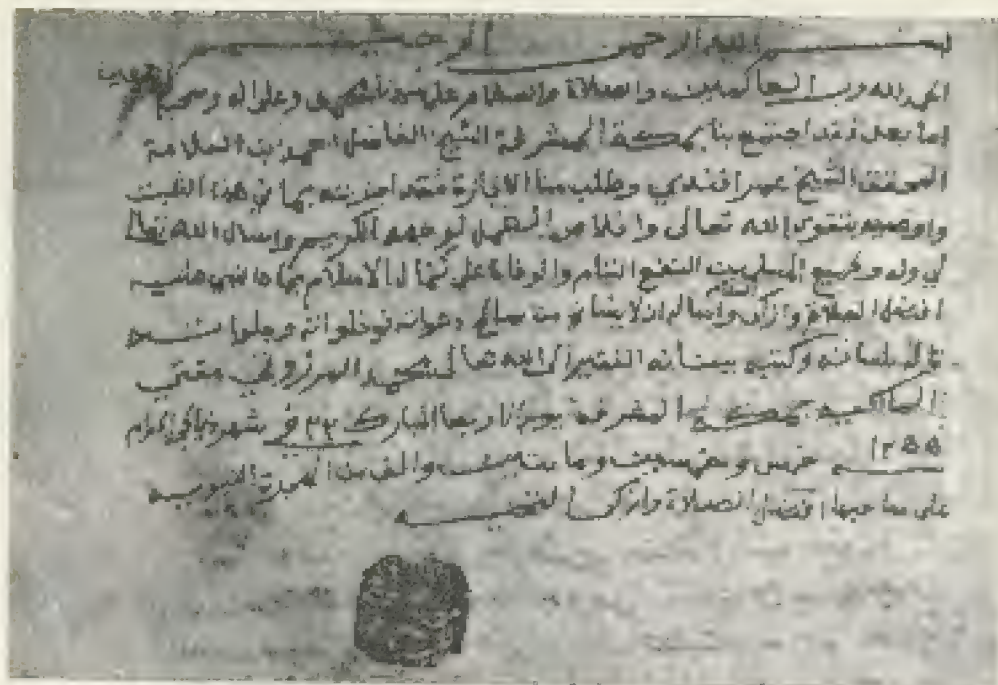 بسم الله الرحمن الرحيم
الحمد لله رب العالمين والصلاة والسلام على سيدنا محمد وعلى اله وصحبه اجمعين
اما بعد فقد اجتمع بنا بمكة المشرفة الشيخ الفاضل احمد بن العلامة
المحقق الشيخ عمر افندي وطلب منا الاجازة فقد اجزته بما في هذا الثبت
واوصيه بتقوى الله تعالى واخلاص العمل لوجهه الكريم واسال الله تعالى
لي وله وجميع المسلمين النفع التام والوفاة على كمال الاسلام بجاه النبي عليه
افضل الصلاة وازكى السلام واساله ان لا ينساني من صالح دعواته في خلواته وجلواته
قاله بلسانه وكتبه ببنانه الفقير الى الله تعالى محمد المرزوقي مفتي
المالكية بمكة المشرفة يوم الاربعا المبارك ٢٢ في شهر ذي الحرام
١٢٥٥ خمس وخمسين ومايتين والف من الهجرة النبوية
على صاحبها افضل الصلاة وازكى التحية